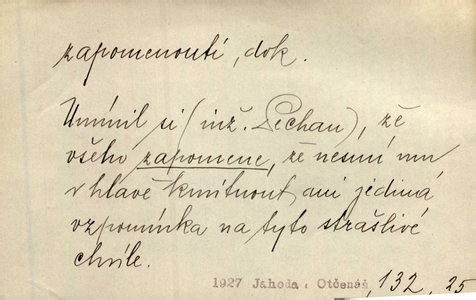 zapomenouti, dok.
Umínil si (inž. Pechan), že
všeho zapomene, že nesmí mu
v hlavě kmitnout ani jediná
vzpomínka na tyto strašlivé
chvíle.
1927 Jahoda: Otčenáš, 132, 25